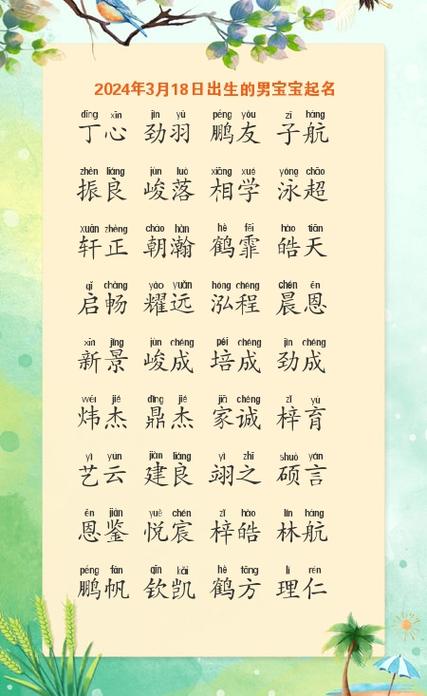 2024年3月18日出生的男宝宝起名
dīng xīn jìn yǔ péng yǒu zǐ háng
丁心 劲羽 鹏友 子航
zhèn liáng jùn luò xiāng xué yǒng chāo
振良 峻落 相学 泳超
xuān zhèng cháo hàn hè fēi hào tiān
轩正 朝瀚 鹤霏 皓天
qǐ chàng yào yuǎn hóng chéng chén ēn
启畅 耀远 泓程 晨恩
xīn jǐng jùn chéng péi chéng jìn chéng
新景 峻成 培成 劲成
wěi jié dǐng jié jiā chéng zǐ yù
炜杰 鼎杰 家诚 梓育
yì yún jiàn liáng yì zhī shuò yán
艺云 建良 翊之 硕言
ēn jiàn yuè chén zǐ hào lín háng
恩鉴 悦宸 梓皓 林航
péng fān qīn kǎi hè fāng lǐ rén
鹏帆 钦凯 鹤方 理仁